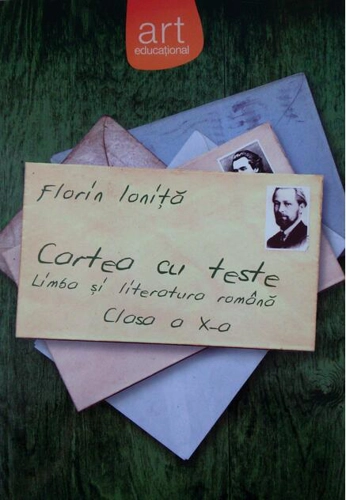 art
educațional
Florin Ioniță
Cartea cu teste
Limba și literatura română
Clasa a X-a